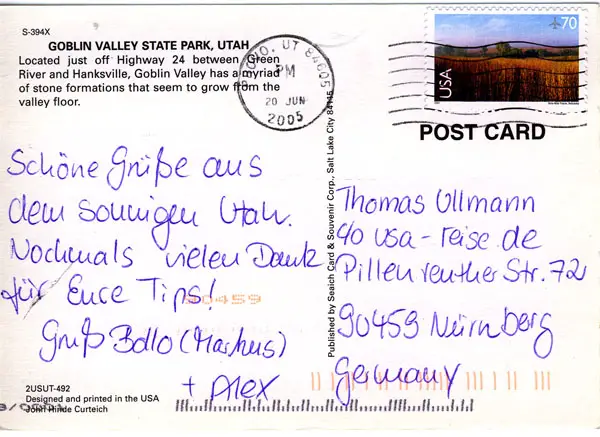 S-394X
GOBLIN VALLEY STATE PARK, UTAH
Located just off Highway 24 between Green
River and Hanksville, Goblin Valley has a myriad
of stone formations that seem to grow from the
valley floor.
PROVO, UT 84605
PM
20 JUN
2005
70
USA
POST CARD
Schöne Grüße aus
dem sonnigen Utah.
Nochmals vielen Dank
für Eure Tips!
90459
Gruß Bollo (Markus)
+ Alex
Published by Seaich Card & Souvenir Corp., Salt Lake City 84115
Thomas Ullmann
c/o usa-reise.de
Pillenreuther Str. 72
90459 Nürnberg
Germany
2USUT-492
Designed and printed in the USA
John Hinde Curteich